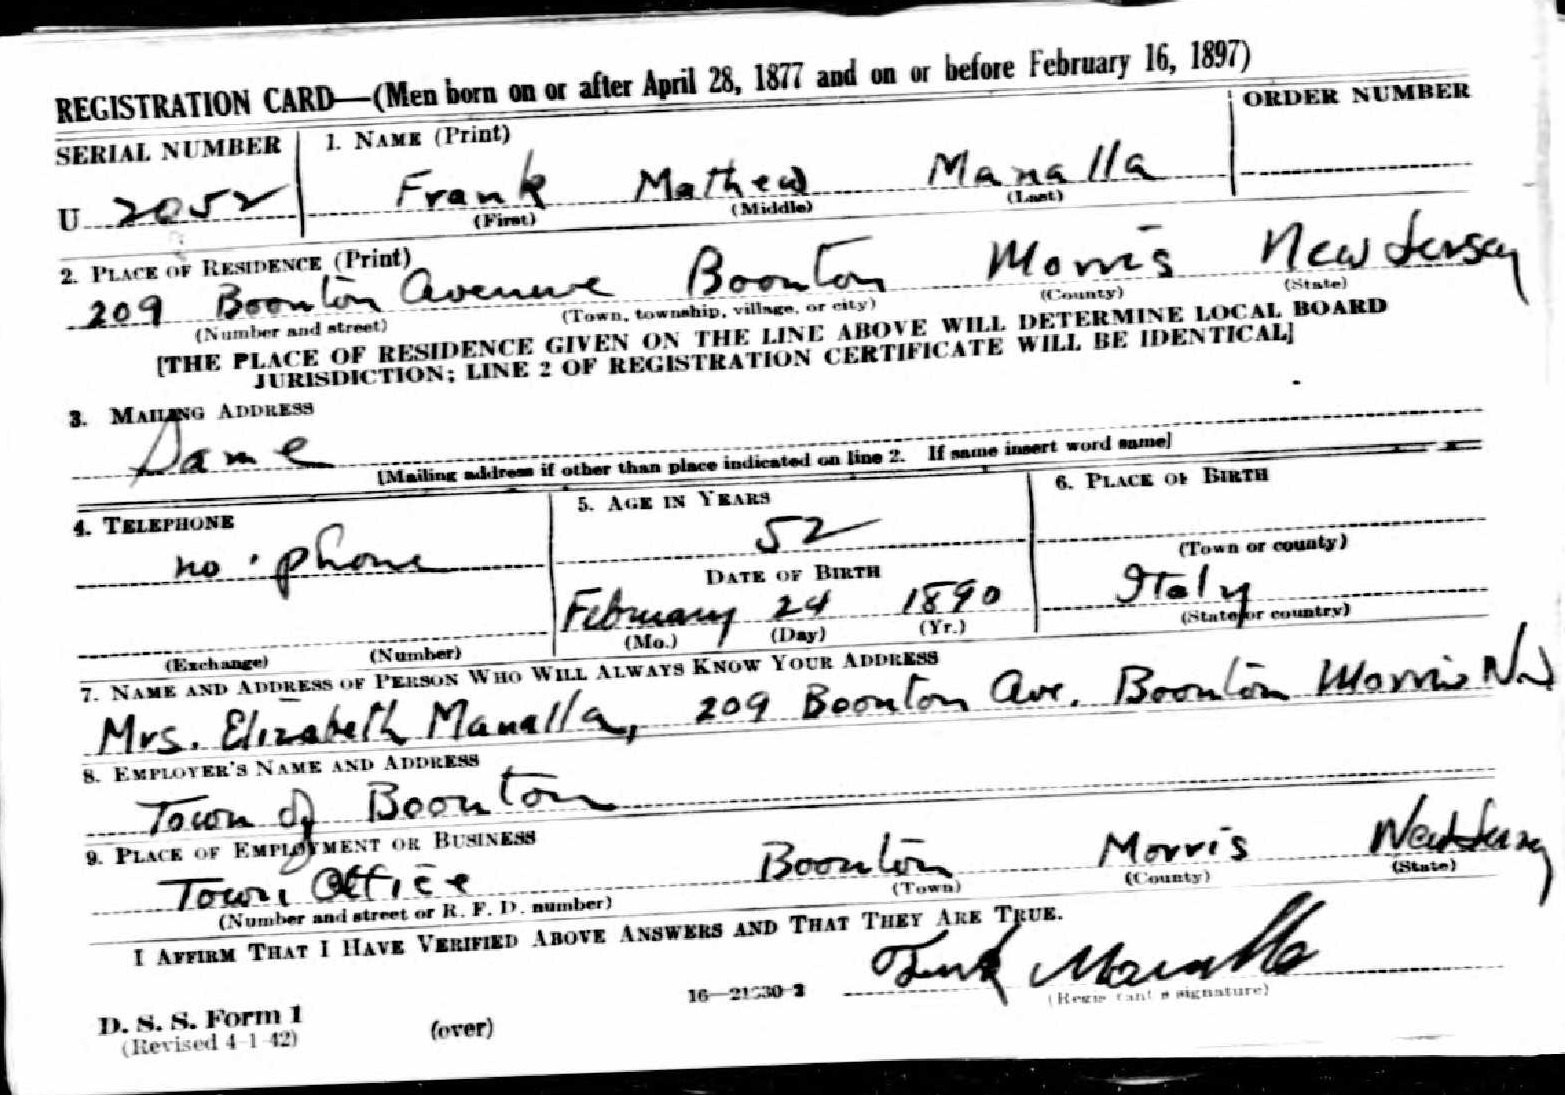 REGISTRATION CARD—(Men born on or after April 28, 1877 and on or before February 16, 1897)
SERIAL NUMBER 1. NAME (Print) ORDER NUMBER
U 2052 Frank Mathew Manalla
(First) (Middle) (Last)
2. PLACE OF RESIDENCE (Print)
209 Boonton Avenue Boonton Morris New Jersey
(Number and street) (Town, township, village, or city) (County) (State)
[THE PLACE OF RESIDENCE GIVEN ON THE LINE ABOVE WILL DETERMINE LOCAL BOARD
JURISDICTION; LINE 2 OF REGISTRATION CERTIFICATE WILL BE IDENTICAL]
3. MAILING ADDRESS
Same
[Mailing address if other than place indicated on line 2. If same insert word same]
4. TELEPHONE 5. AGE IN YEARS 6. PLACE OF BIRTH
no phone 52
(Town or county)
DATE OF BIRTH
February 24 1890 Italy
(Mo.) (Day) (Yr.) (State or country)
(Exchange) (Number)
7. NAME AND ADDRESS OF PERSON WHO WILL ALWAYS KNOW YOUR ADDRESS
Mrs. Elizabeth Manalla, 209 Boonton Ave. Boonton Morris N.J
8. EMPLOYER'S NAME AND ADDRESS
Town of Boonton
9. PLACE OF EMPLOYMENT OR BUSINESS
Town Office Boonton Morris New Jersey
(Number and street or R. F. D. number) (Town) (County) (State)
I AFFIRM THAT I HAVE VERIFIED ABOVE ANSWERS AND THAT THEY ARE TRUE.
Frank Manalla
D. S. S. Form 1 16—21630-2 (Registrant's signature)
(Revised 4-1-42) (over)